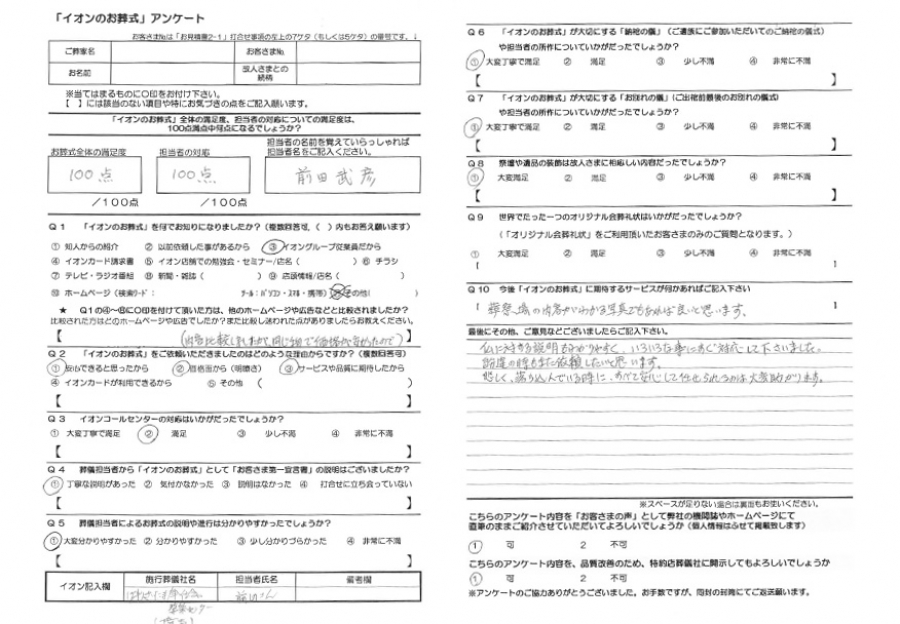 「イオンのお葬式」アンケート
お客さま№は「お見積書2-1」打合せ事項の左上の7ケタ(もしくは5ケタ)の番号です。↓
ご葬家名 お客さま№
お名前 故人さまとの続柄
※当てはまるものに○印をお付け下さい。
【 】には該当のない項目や特にお気づきの点をご記入願います。
「イオンのお葬式」全体の満足度、担当者の対応についての満足度は、
100点満点中何点になるでしょうか?
お葬式全体の満足度 担当者の対応 担当者の名前を覚えていらっしゃれば
担当者名をご記入ください。
100点 100点 前田武彦
/100点 /100点
Q1 「イオンのお葬式」を何でお知りになりましたか?(複数回答可、( )内もお答え願います)
① 知人からの紹介 ② 以前依頼した事があるから ③ イオングループ従業員だから
④ イオンカード請求書 ⑤ イオン店舗での勉強会・セミナー/店名( ) ⑥ チラシ
⑦ テレビ・ラジオ番組 ⑧ 新聞・雑誌( ) ⑨ 店頭情報/店名( )
⑩ ホームページ(検索ワード: ツール:パソコン・スマホ・携帯) その他( )
★ Q1の④~⑩に○印を付けて頂いた方は、他のホームページや広告などと比較されましたか?
比較された方はどのホームページや広告でしたか?また比較し迷われた点がありましたらお教えください。
【 】
Q2 「イオンのお葬式」をご依頼いただきましたのはどのような理由からですか?(複数回答可)
① 安心できると思ったから ② 価格面から(明瞭さ) ③ サービスや品質に期待したから
④ イオンカードが利用できるから ⑤ その他 ( )
【 】
Q3 イオンコールセンターの対応はいかがだったでしょうか?
① 大変丁寧で満足 ② 満足 ③ 少し不満 ④ 非常に不満
【 】
Q4 葬儀担当者から「イオンのお葬式」として「お客さま第一宣言書」の説明はございましたか?
① 丁寧な説明があった ② 気付かなかった ③ 説明はなかった ④ 打合せに立ち会っていない
【 】
Q5 葬儀担当者によるお葬式の説明や進行は分かりやすかったでしょうか?
① 大変分かりやすかった ② 分かりやすかった ③ 少し分かりづらかった ④ 非常に不満
【 】
イオン記入欄 施行葬儀社名 担当者氏名 備考欄
Q6 「イオンのお葬式」が大切にする「納棺の儀」(ご遺族にご参加いただいてのご納棺の儀式)
や担当者の所作についていかがだったでしょうか?
① 大変丁寧で満足 ② 満足 ③ 少し不満 ④ 非常に不満
【 】
Q7 「イオンのお葬式」が大切にする「お別れの儀」(ご出棺前最後のお別れの儀式)
や担当者の所作についていかがだったでしょうか?
① 大変丁寧で満足 ② 満足 ③ 少し不満 ④ 非常に不満
【 】
Q8 祭壇や遺品の装飾は故人さまに相応しい内容だったでしょうか?
① 大変満足 ② 満足 ③ 少し不満 ④ 非常に不満
【 】
Q9 世界でたった一つのオリジナル会葬礼状はいかがだったでしょうか?
(「オリジナル会葬礼状」をご利用頂いたお客さまのみのご質問となります。)
① 大変満足 ② 満足 ③ 少し不満 ④ 非常に不満
【 】
Q10 今後「イオンのお葬式」に期待するサービスが何かあればご記入下さい
葬祭場の内容がわかる写真でもあれば良いと思います。
最後にその他、ご意見などございましたらご記入下さい。
私に対する説明もわかりやすく、いろいろな事にもご対応して下さいました。
悲しく、落ち込んでいる時に、すべて安心して任せられるのは大変助かります。
※スペースが足りない場合は裏面もお使いください。
こちらのアンケート内容を「お客さまの声」として弊社の機関誌やホームページにて
直筆のままご紹介させていただいてよろしいでしょうか(個人情報はふせて掲載致します)
1 可 2 不可
こちらのアンケート内容を、品質改善のため、特約店葬儀社に開示してもよろしいでしょうか
1 可 2 不可
※アンケートのご協力ありがとうございました。お手数ですが、同封の封筒にてご返送願います。